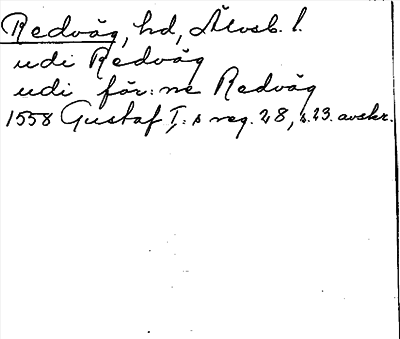 Redväg, hd, Älvsb. l.
udi Redväg
udi för:ne Redväg
1558 Gustaf I:s reg. 28, s. 23. avskr.